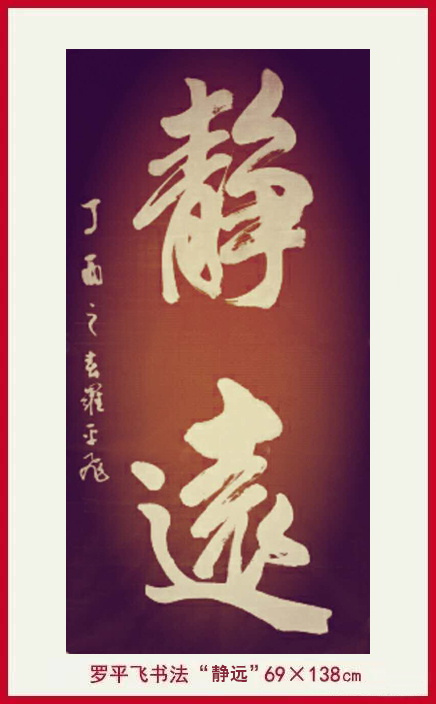 静
遠
丁酉之春羅平飛
罗平飞书法“静远”69×138cm